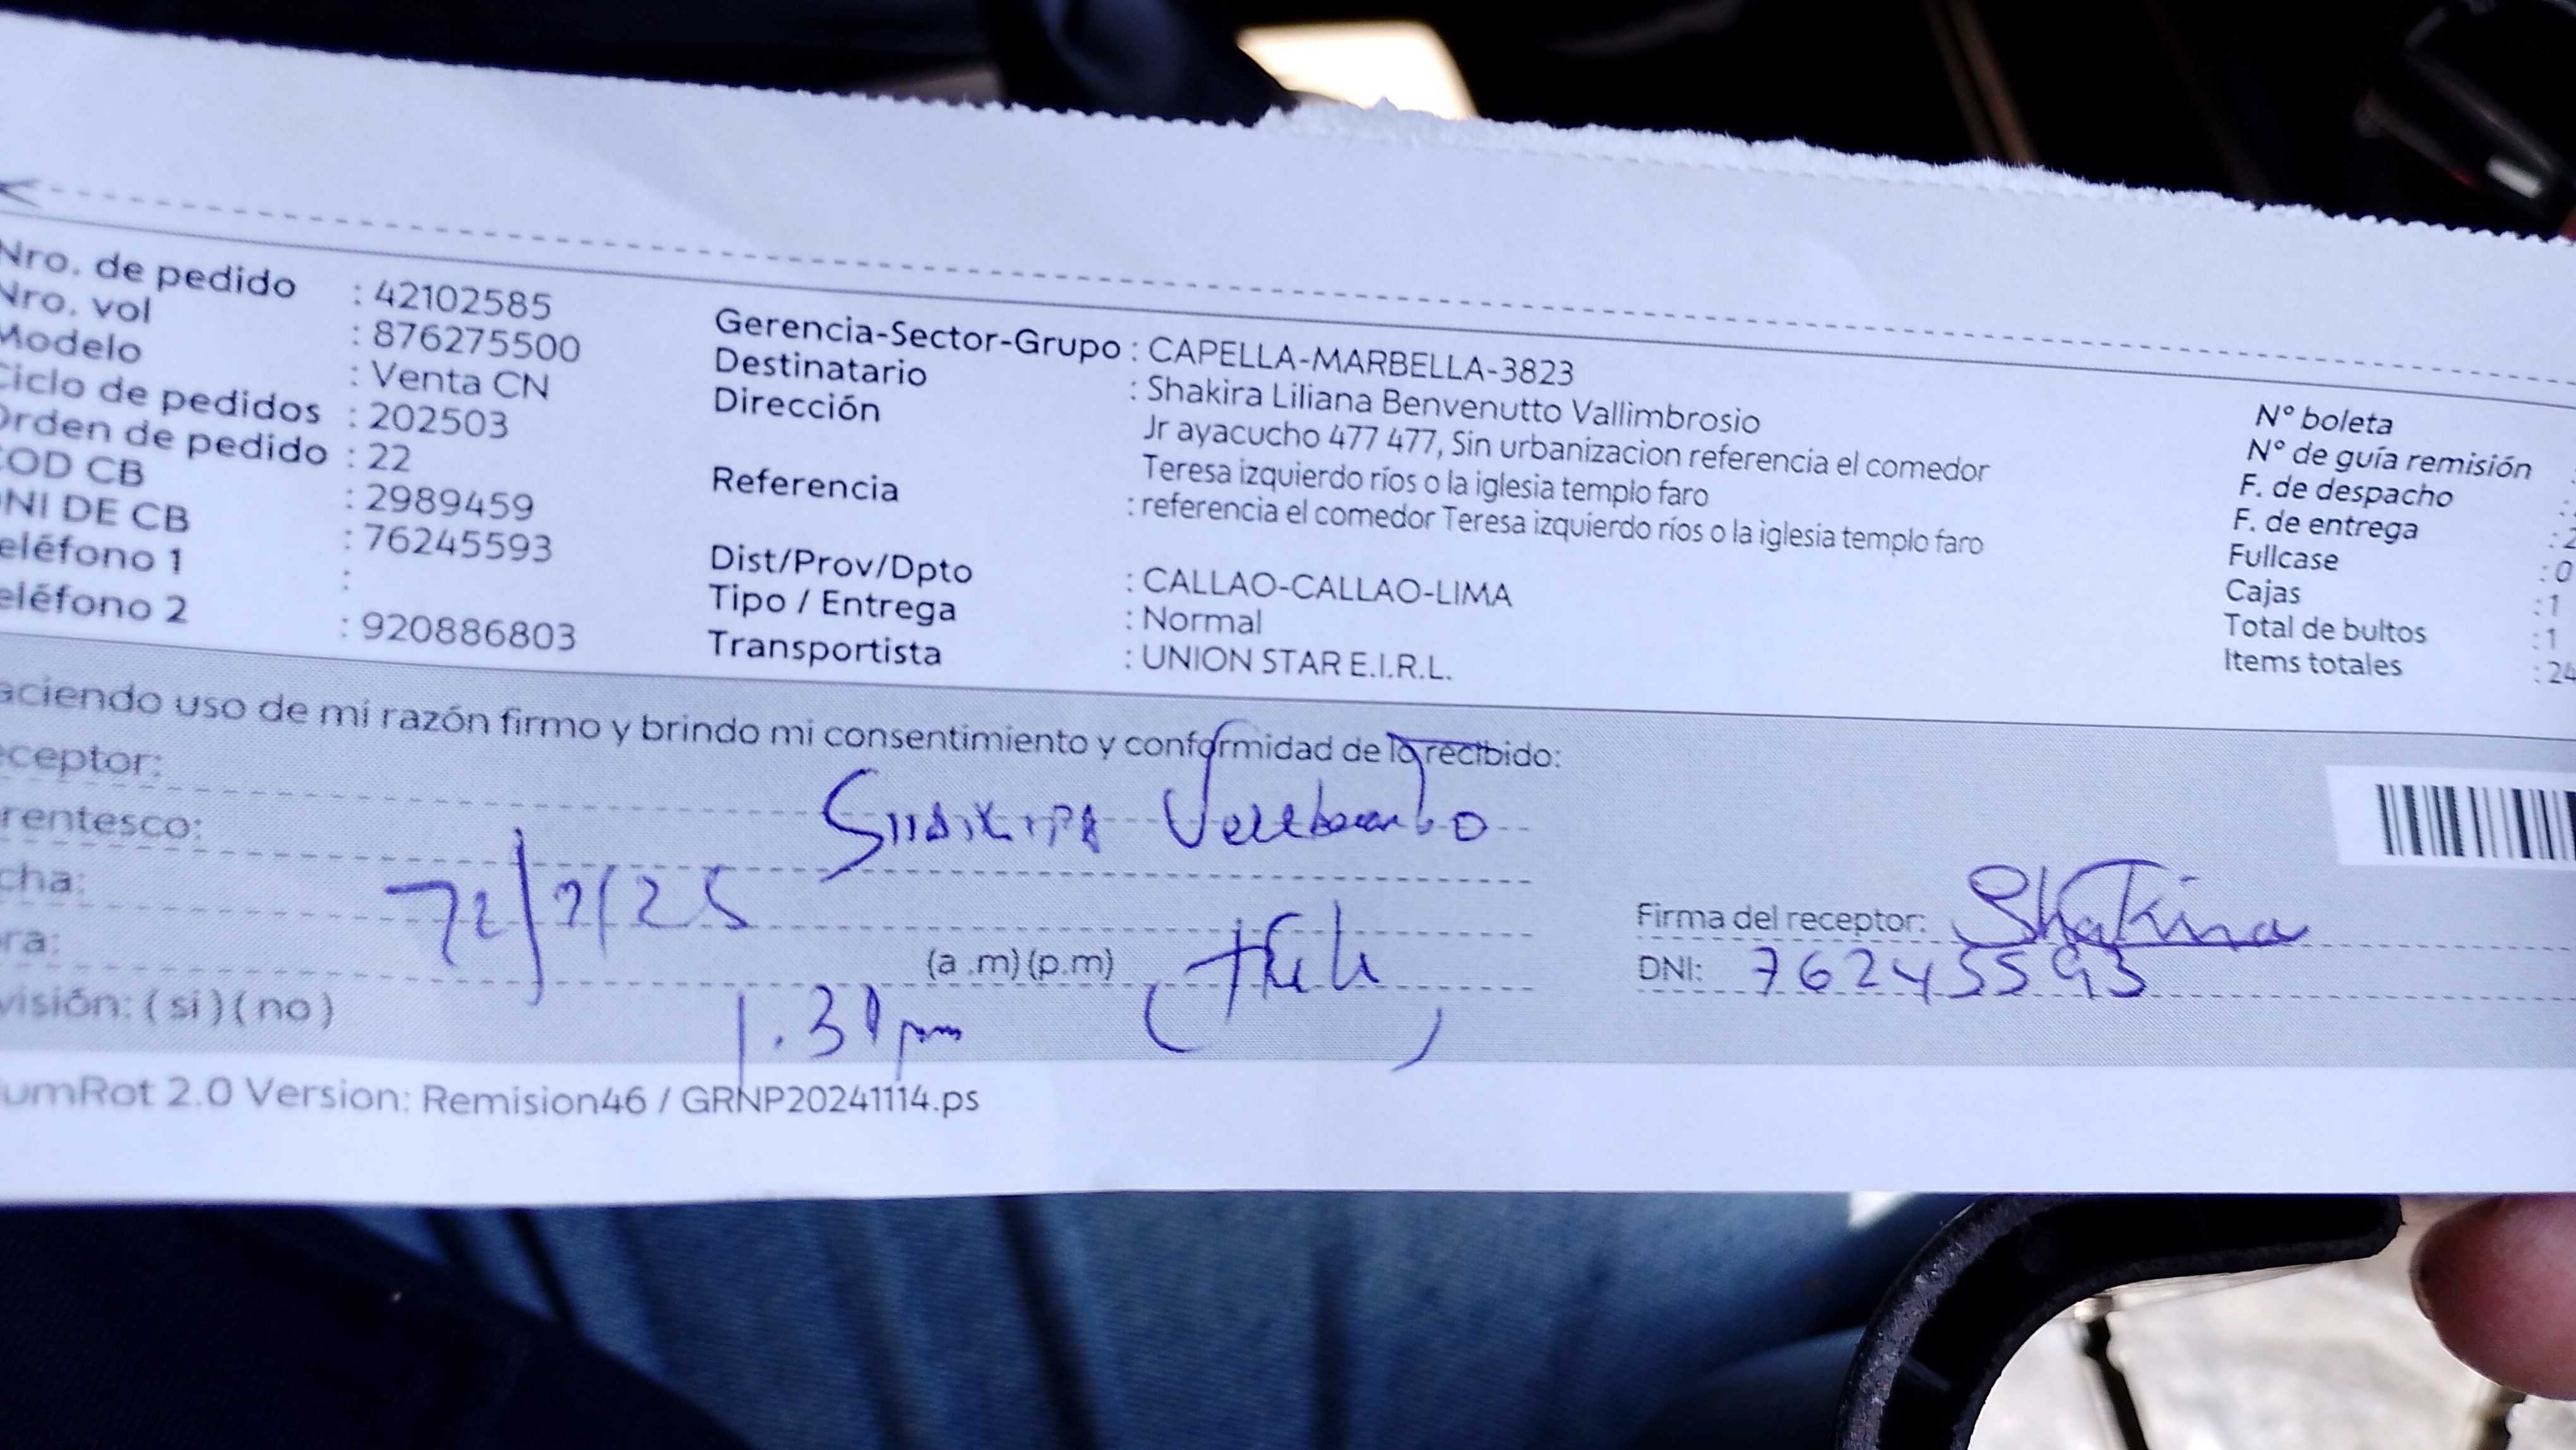 Nro. de pedido : 42102585
Nro. vol : 876275500
Modelo : Venta CN
Ciclo de pedidos : 202503
Orden de pedido : 22
COD CB : 2989459
NI DE CB : 76245593
eléfono 1 :
eléfono 2 : 920886803
Gerencia-Sector-Grupo : CAPELLA-MARBELLA-3823
Destinatario : Shakira Liliana Benvenutto Vallimbrosio
Dirección Jr ayacucho 477 477, Sin urbanizacion referencia el comedor
Teresa izquierdo ríos o la iglesia templo faro
Referencia : referencia el comedor Teresa izquierdo ríos o la iglesia templo faro
Dist/Prov/Dpto : CALLAO-CALLAO-LIMA
Tipo / Entrega : Normal
Transportista : UNION STAR E.I.R.L.
N° boleta
N° de guía remisión :
F. de despacho :
F. de entrega : 2
Fullcase : 0
Cajas : 1
Total de bultos : 1
Items totales : 24
aciendo uso de mi razón firmo y brindo mi consentimiento y conformidad de lo recibido:
eceptor:
rentesco:
cha:
ra: (a .m) (p.m)
visión: ( si ) ( no )
1.31 pm
Firma del receptor: Shakira
DNI: 76245593
umRot 2.0 Version: Remision46 / GRNP20241114.ps